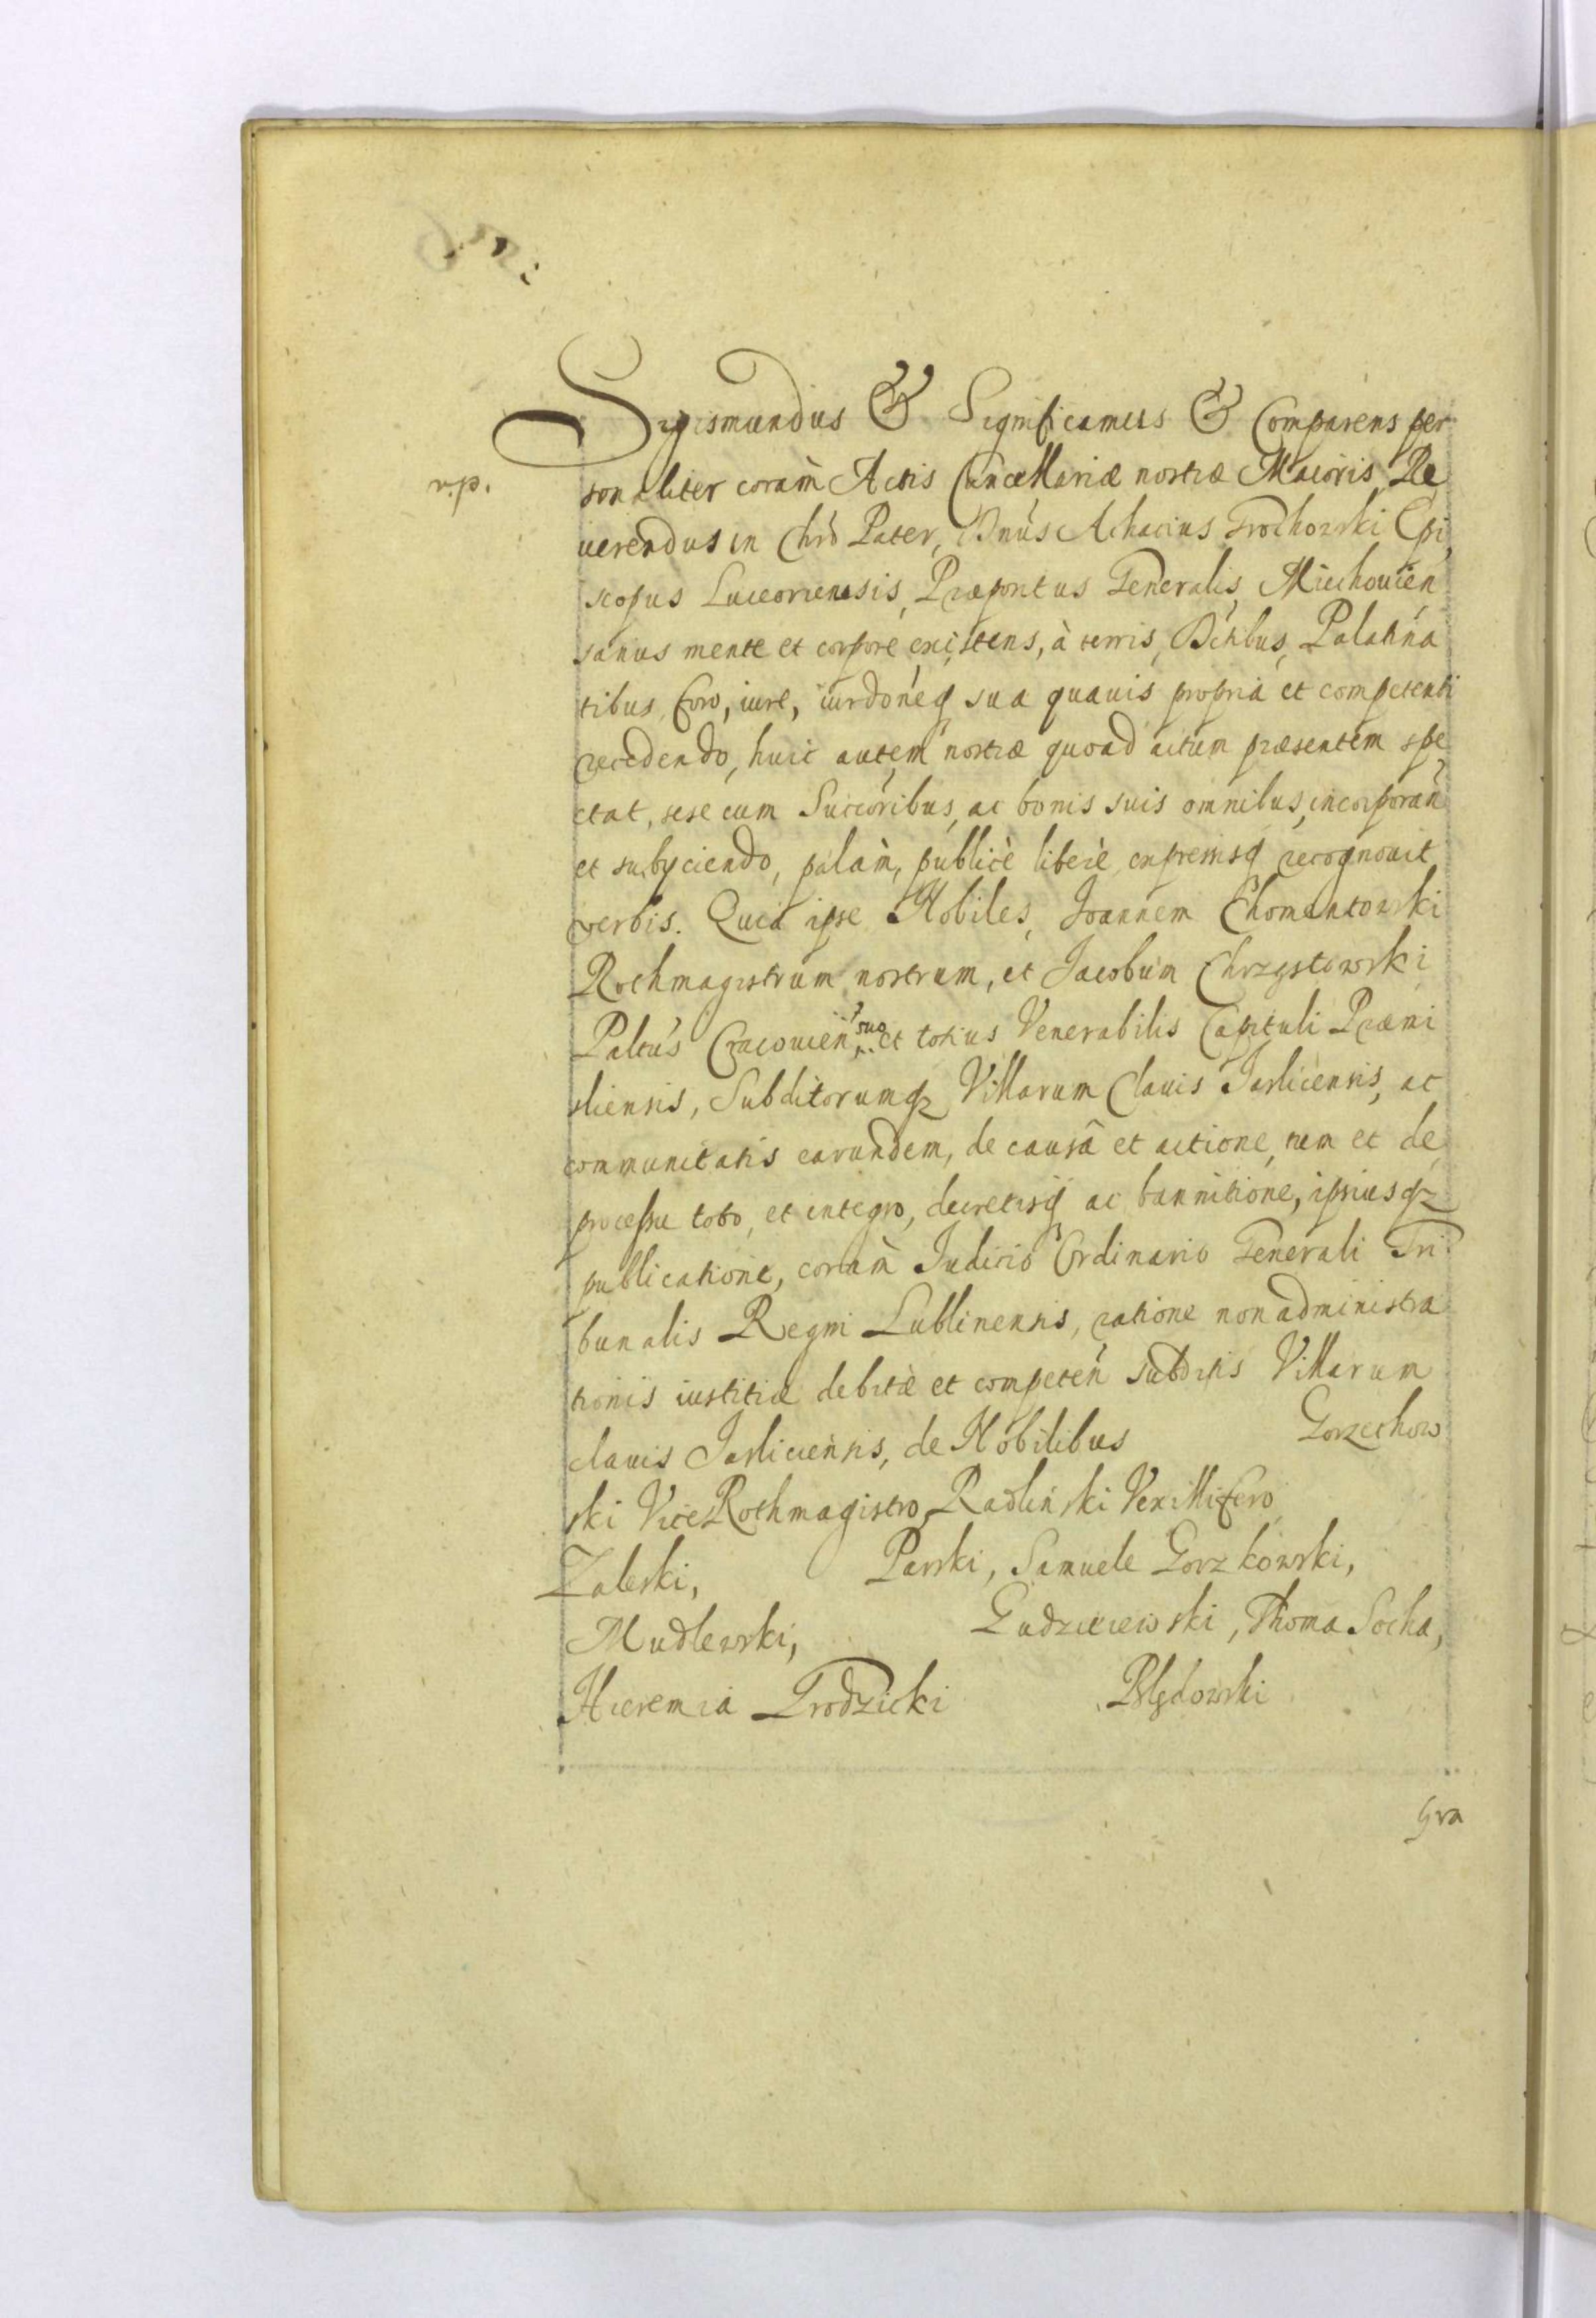 Sigismundus & Significamus & Comparens per
sonaliter coràm Actis Cancellariæ nostræ Maioris, Re
uerendus in Chro Pater, Dnus Achacius Grochowski Epi
scopus Luceoriensis, Præpositus Generalis Miechouien
sanus mente et corpore existens, à terris, Dctibus, Palatina
tibus, foro, iure, iurdoneq sua quauis propria et competenti
recedendo, huic autem nostræ quoad actum præsentem spe
ctat, sese cum Succoribus, ac bonis suis omnibus, incorporan
et subyciendo, palàm, publicè liberè expressisq recognouit
verbis. Quia ipse Nobiles, Ioannem Chomentowski
Rothmagistrum nostrum, et Iacobum Chrząstowski
Paltus Cracouien suo et totius Venerabilis Capituli Præmi
sliensis, Subditorumqz Villarum Clauis Iasliciensis, ac
communitatis earundem, de causâ et actione, tum et de
processu toto, et integro, decretisq ac bannitione, ipsiusqz
publicatione, coràm Iudicio Ordinario Generali Tri
bunalis Regni Lublinensis, ratione non administra
tionis iustitiæ debitæ et competen subditis Villarum
clauis Iasliciensis, de Nobilibus Gorzechow
ski Vice Rothmagistro, Radlinski Vexillifero
Zaleski, Parski, Samuele Gorzkowski,
Mudlewski, Gudzieiewski, Thoma Socha,
Hieremia Grodzicki Błędowski
Gra